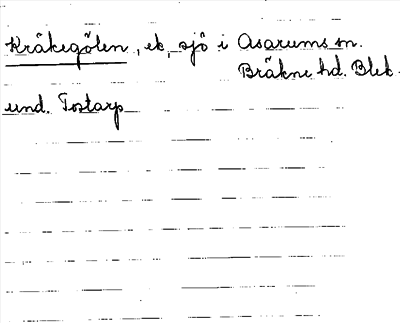 Kråkegölen, ek, sjö i Asarums sn.
Bräkne hd. Blek.
und. Tostarp